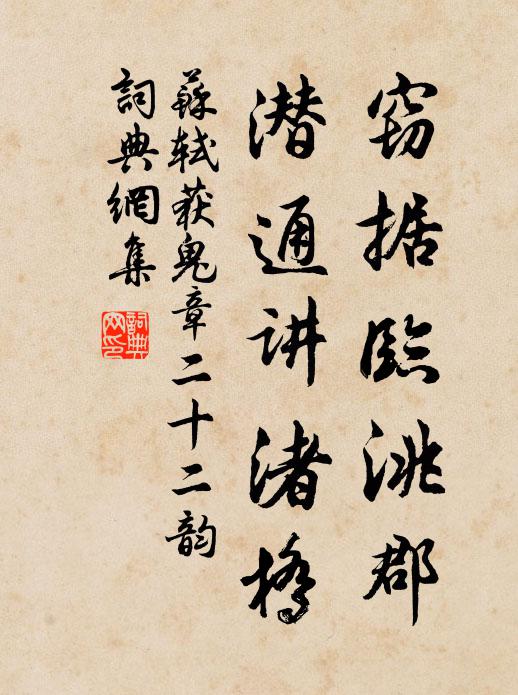 窃据临洮郡
潜通讲渚桥
蘇轼获鬼章二十二韵
詞典網集
詞典網印